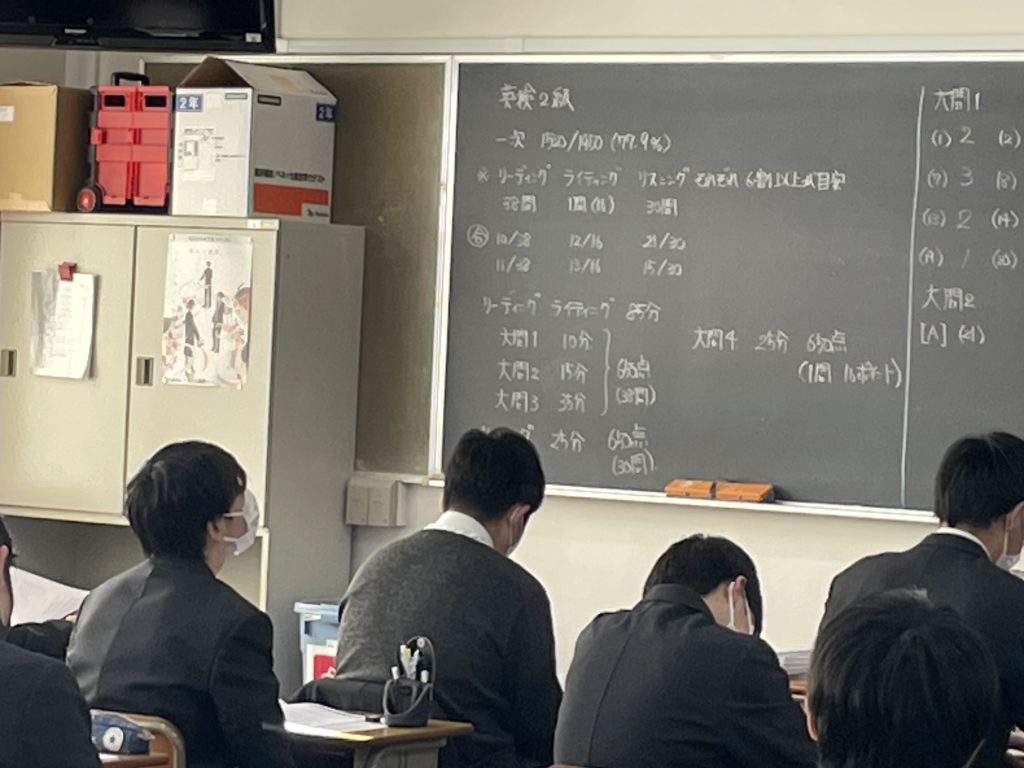 英検2級
一次 1520/1950 (77.9%)
※ リーディング ライティング リスニング それぞれ 6割以上が目安
38問 1問(16) 30問
合 10/38 12/16 21/30
11/38 13/16 15/30
リーディング ライティング 85分
大問1 10分
大問2 15分
大問3 35分
650点
(38問)
大問4 25分 650点
(1問 16ポイント)
25分 650点
(30問)
大問1
(1) 2 (2)
(7) 3 (8)
(13) 2 (14)
(19) 1 (20)
大問2
[A]
2年
2年